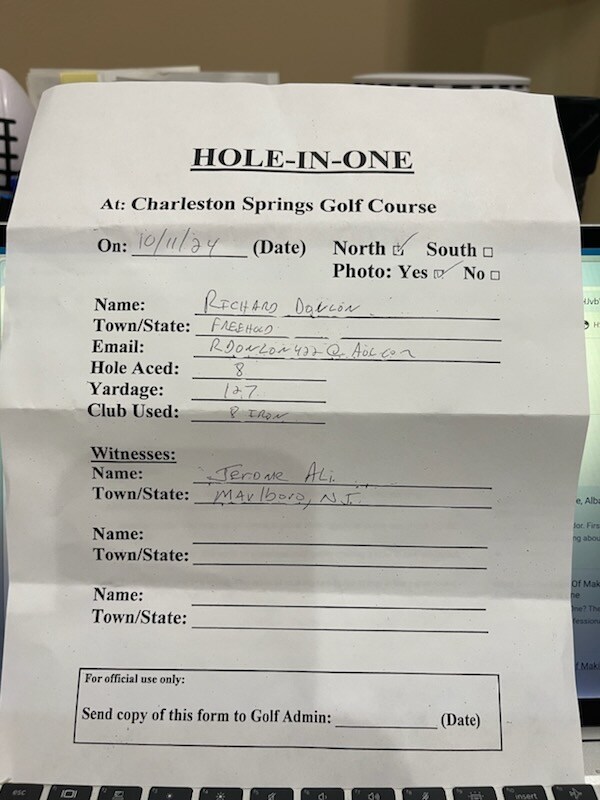 HOLE-IN-ONE
At: Charleston Springs Golf Course
On: 10/11/24 (Date) North ☑ South □
Photo: Yes ☑ No □
Name: RICHARD DONLON
Town/State: FREEHOLD
Email: RDONLON422@AOL.COM
Hole Aced: 8
Yardage: 127
Club Used: 8 IRON
Witnesses:
Name: Jerome Ali
Town/State: Marlboro, NJ.
Name:
Town/State:
Name:
Town/State:
For official use only:
Send copy of this form to Golf Admin: (Date)
esc
insert